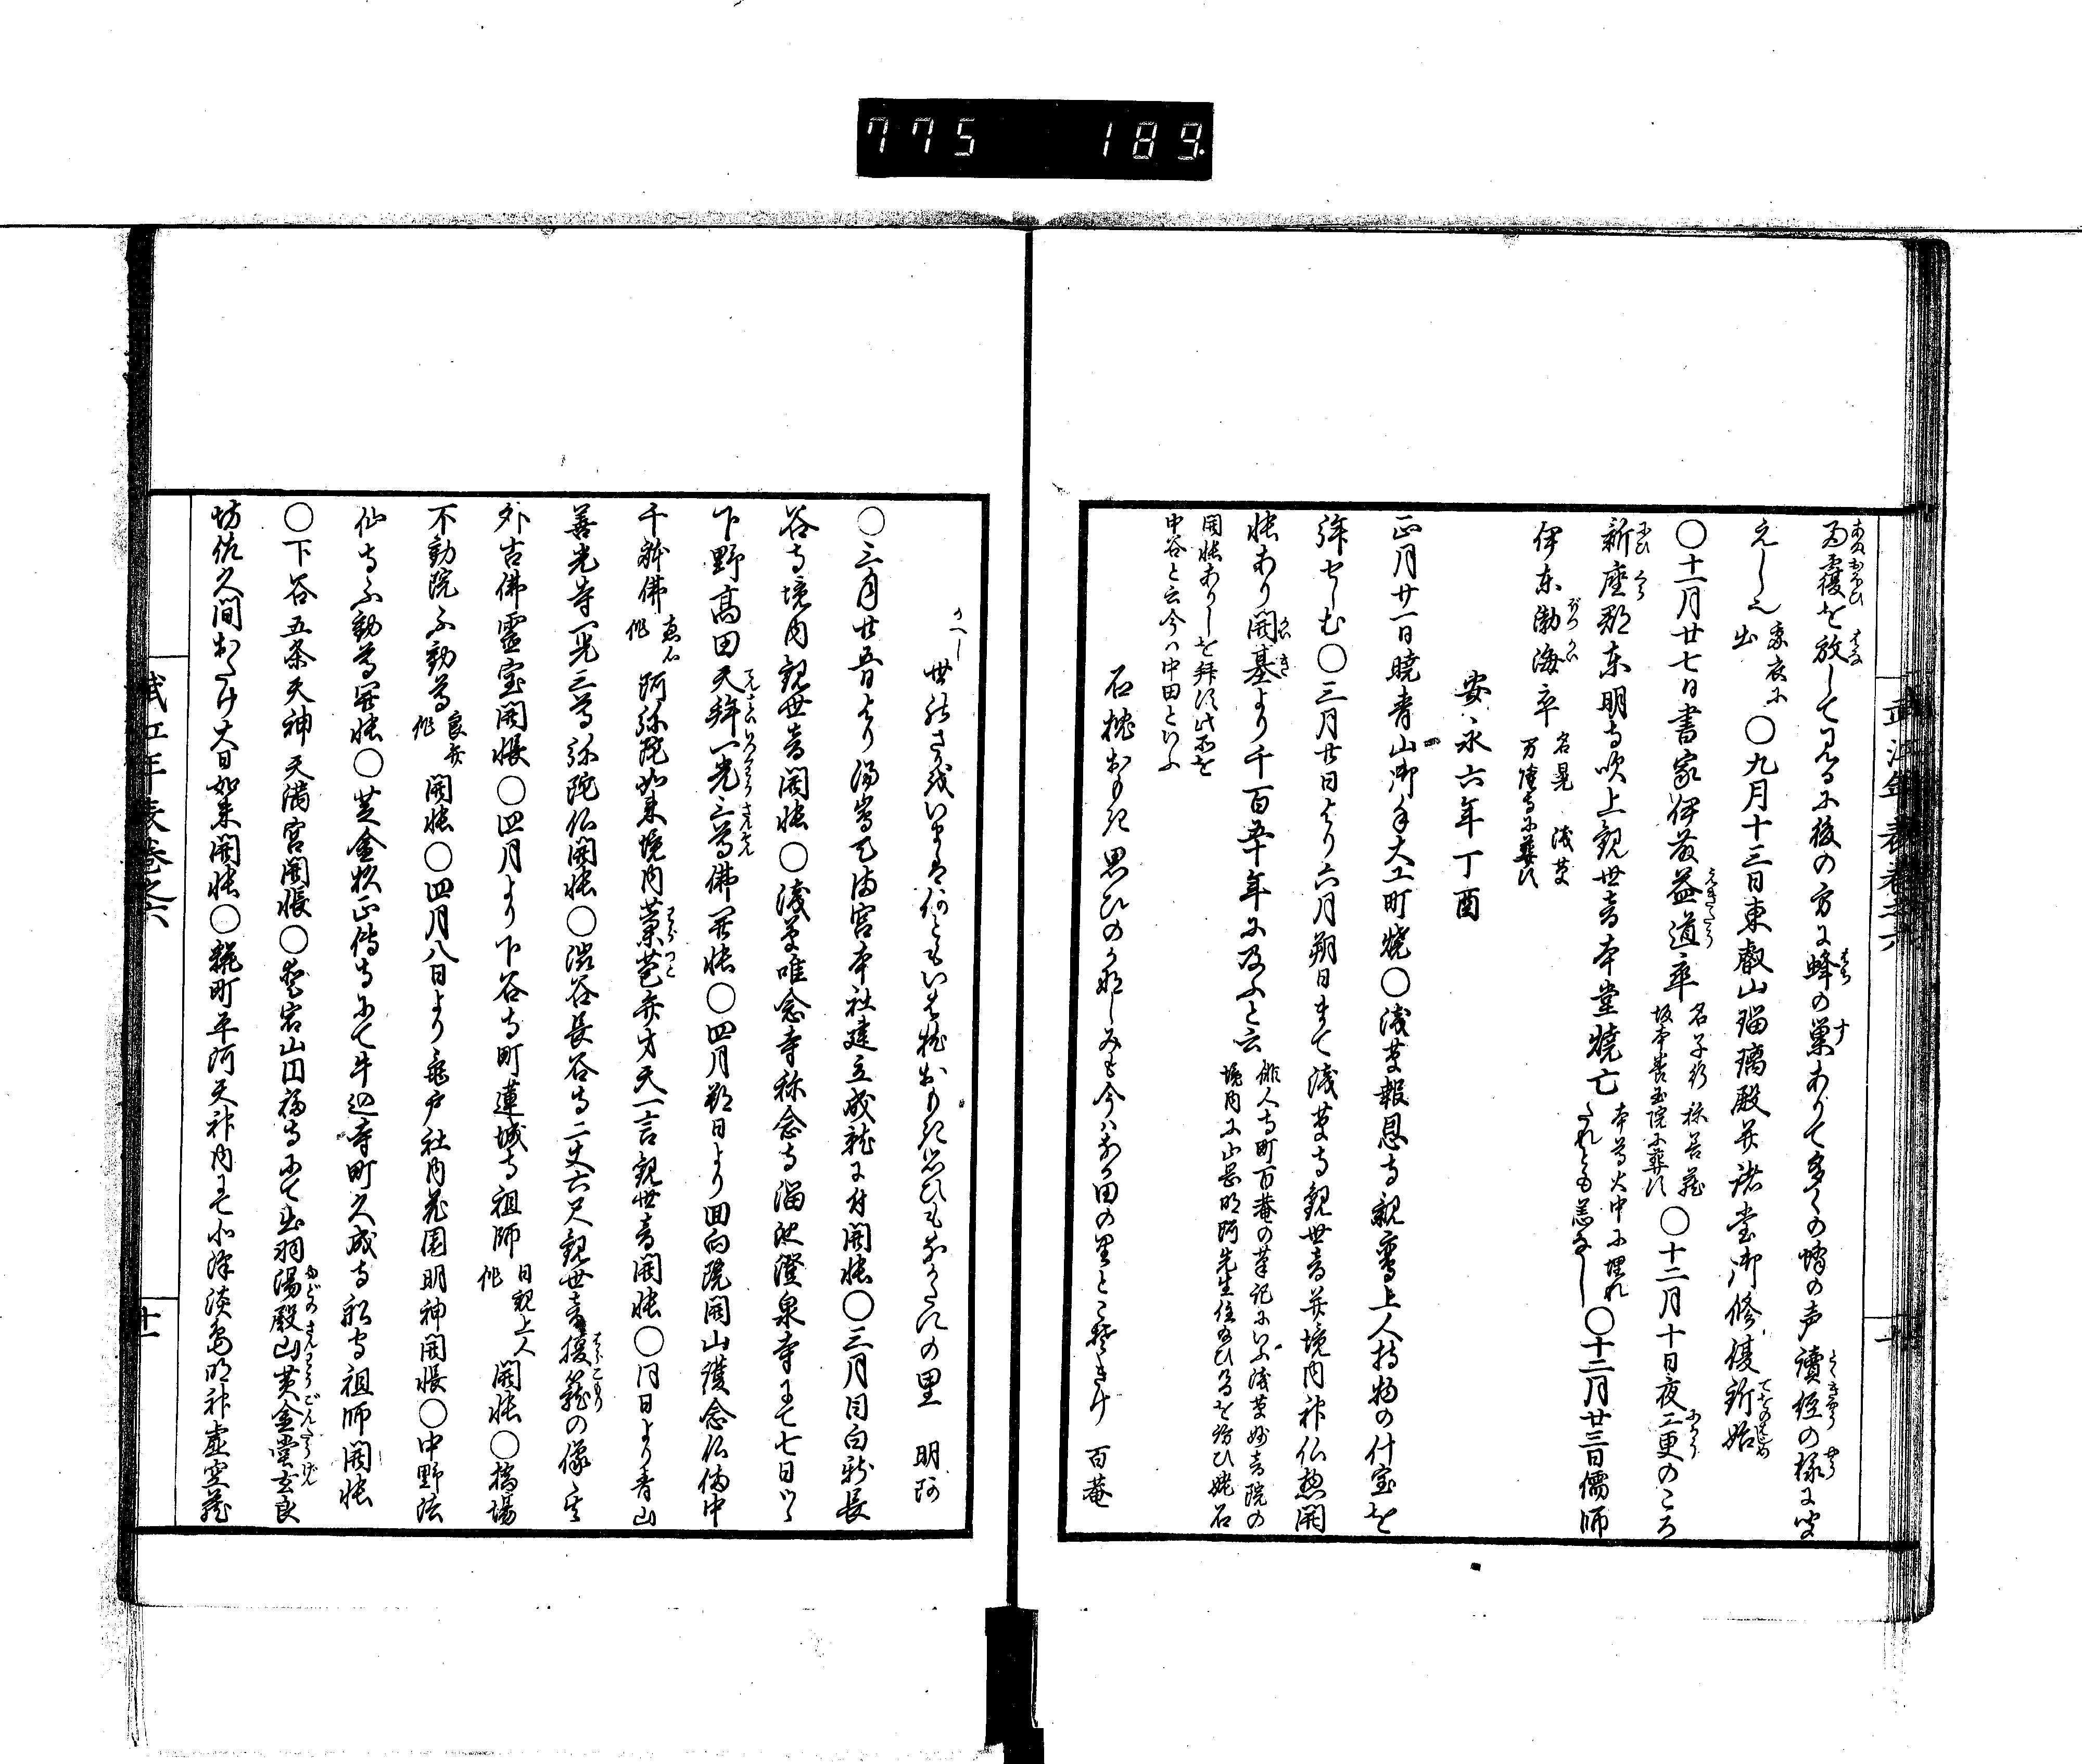 775 189
武江年表巻之六
十
雨覆を放して見るに後の方に蜂の巣ありて多くの蜂の声読経の様に聞
えしといふ
〇九月十三日東叡山瑠璃殿并諸堂御修復釿始
〇十一月廿七日書家伊藤益道卒
〇十二月十日夜二更のころ
新座郡東明寺吹上観世音本堂焼亡
本尊火中に埋れ
たれとも恙なし
〇十二月廿三日儒師
伊東渤海卒
名晃 浅草
に葬す
安永六年丁酉
正月廿一日暁青山御手大工町焼〇浅草報恩寺親鸞上人持物の什宝を
拝せしむ〇三月廿日より六月朔日まて浅草寺観世音并境内神仏惣開
帳あり開基より千百五十年に及ふと云
俳人寺町百菴の筆記にいふ浅草妙音院の
境内に山岡明阿先生住給ひしを訪ひ姥石
開帳ありしを拝す此所を
中谷と云今ハ中田といふ
石枕おもき思ひのかなしみも今ハなか田の里とこそきけ 百菴
かへし
世のさまいまは何ともいし枕おもき思ひもなかたにの里 明阿
〇三月廿五日より湯島天満宮本社建立成就に付開帳〇三月目白新長
谷寺境内観世音開帳〇浅草唯念寺称念寺溜池澄泉寺にて七日ツヽ
下野高田天拝一光三尊佛開帳〇四月朔日より回向院開山護念仏備中
千躰佛
恵心
作
阿弥陀如来境内藁苞弁才天一言観世音開帳〇同日より青山
善光寺一光三尊弥陀仏開帳〇渋谷長谷寺二丈六尺観世音腹籠の像其
外古佛霊宝開帳〇四月より下谷寺町蓮城寺祖師
日親上人
作
開帳〇橋場
不動院不動尊
良弁
作
開帳〇四月八日より亀戸社内花園明神開帳〇中野法
仙寺不動尊開帳〇芝金杉正傳寺にて牛込寺町久成寺船守祖師開帳
〇下谷五条天神天満宮開帳〇愛宕山円福寺にて出羽湯殿山黄金堂玄良
坊佐久間おたけ大日如来開帳〇糀町平河天神内にて北澤淡島明神虚空蔵
武江年表巻之六
十一